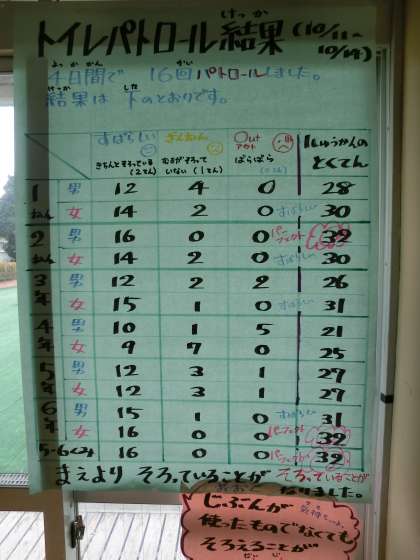 けっか
トイレパトロール結果(10/11~
10/14)
よっかかん かい
4日間で 16回パトロールしました。
けっか した
結果は 下のとおりです。
すばらしい ざんねん Out 1しゅうかんの
アウト とくてん
きちんとそろっている むきがそろって ばらばら
(2てん) いない(1てん)
1 男 12 4 0 28
ねん 女 14 2 0 すばらしい 30
2 男 16 0 0 パーフェクト 32
年 女 14 2 0 すばらしい 30
3 男 12 2 2 26
年 女 15 1 0 すばらしい 31
4 男 10 1 5 21
年 女 9 7 0 25
5 男 12 3 1 27
年 女 12 3 1 27
6 男 15 1 0 すばらしい 31
年 女 16 0 0 パーフェクト 32
5・6くみ 16 0 0 パーフェクト 32
まえより そろっていることが そろっていることが
なりました。
じぶんが
使ったものでなくても
そろえることが